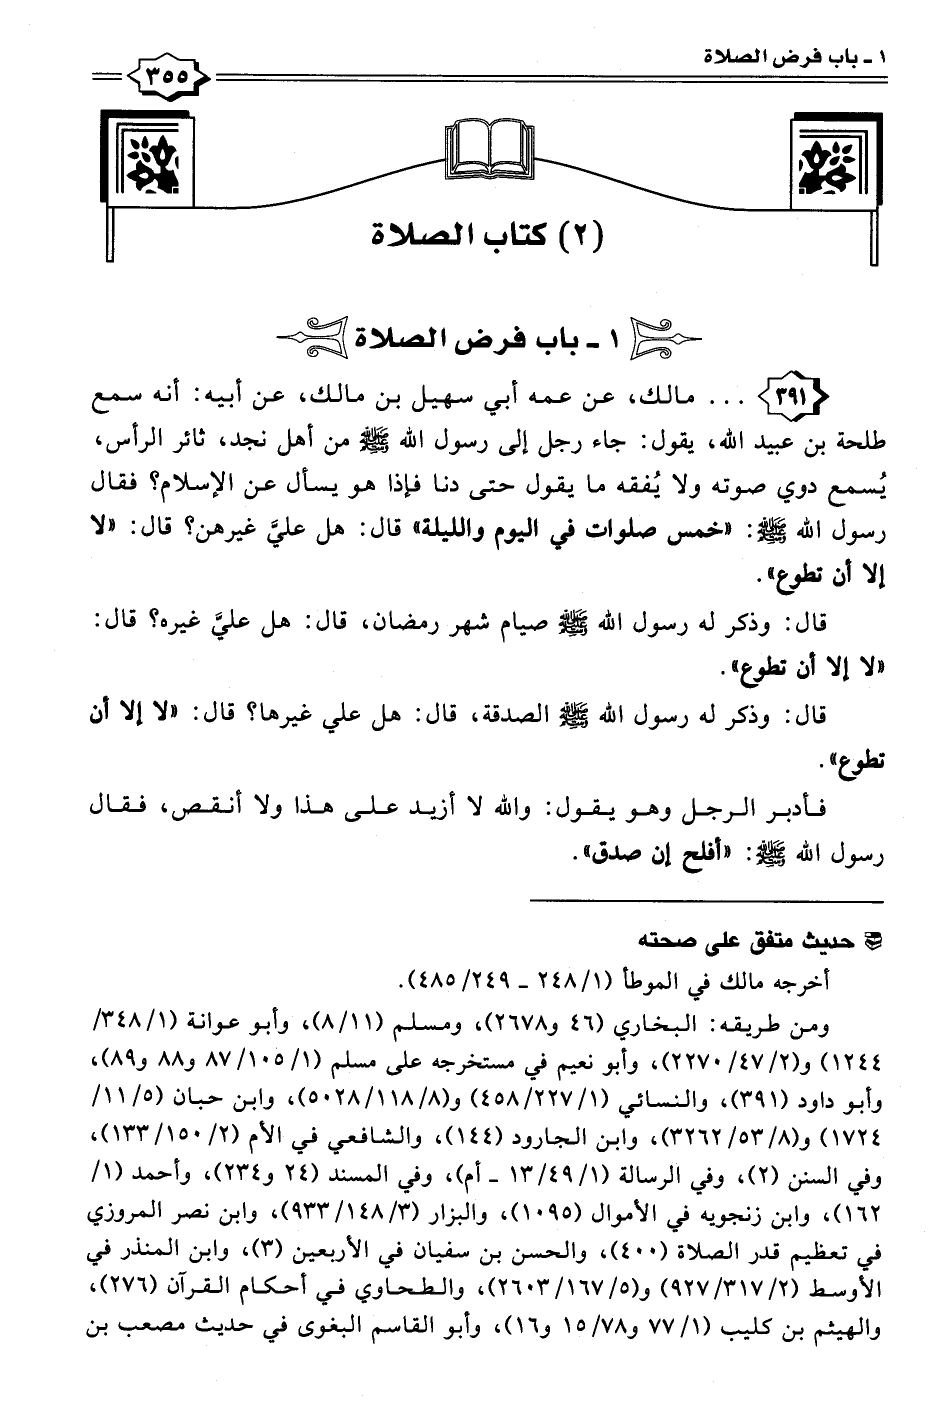 ١ - باب فرض الصلاة
٣٥٥
(٢) كتاب الصلاة
١ - باب فرض الصلاة
٣٩١ ... مالك، عن عمه أبي سهيل بن مالك، عن أبيه: أنه سمع
طلحة بن عبيد الله، يقول: جاء رجل إلى رسول الله ﷺ من أهل نجد، ثائر الرأس،
يُسمع دوي صوته ولا يُفقه ما يقول حتى دنا فإذا هو يسأل عن الإسلام؟ فقال
رسول الله ﷺ: «خمس صلوات في اليوم والليلة» قال: هل عليَّ غيرهن؟ قال: «لا
إلا أن تطوع».
قال: وذكر له رسول الله ﷺ صيام شهر رمضان، قال: هل عليَّ غيره؟ قال:
«لا إلا أن تطوع».
قال: وذكر له رسول الله ﷺ الصدقة، قال: هل علي غيرها؟ قال: «لا إلا أن
تطوع».
فأدبر الرجل وهو يقول: والله لا أزيد على هذا ولا أنقص، فقال
رسول الله ﷺ: «أفلح إن صدق».
حديث متفق على صحته
أخرجه مالك في الموطأ (٢٤٨/١ - ٤٨٥/٢٤٩).
ومن طريقه: البخاري (٤٦ و٢٦٧٨)، ومسلم (٨/١١)، وأبو عوانة (٣٤٨/١/
١٢٤٤) و(٢٢٧٠/٤٧/٢)، وأبو نعيم في مستخرجه على مسلم (٨٧/١٠٥/١ و٨٨ و٨٩)،
وأبو داود (٣٩١)، والنسائي (٤٥٨/٢٢٧/١) و(٥٠٢٨/١١٨/٨)، وابن حبان (١١/٥/
١٧٢٤) و(٣٢٦٢/٥٣/٨)، وابن الجارود (١٤٤)، والشافعي في الأم (١٣٣/١٥٠/٢)،
وفي السنن (٢)، وفي الرسالة (١٣/٤٩/١ - أم)، وفي المسند (٢٤ و٢٣٤)، وأحمد (١/
١٦٢)، وابن زنجويه في الأموال (١٠٩٥)، والبزار (٩٣٣/١٤٨/٣)، وابن نصر المروزي
في تعظيم قدر الصلاة (٤٠٠)، والحسن بن سفيان في الأربعين (٣)، وابن المنذر في
الأوسط (٩٢٧/٣١٧/٢) و(٢٦٠٣/١٦٧/٥)، والطحاوي في أحكام القرآن (٢٧٦)،
والهيثم بن كليب (٧٧/١ و١٥/٧٨ و١٦)، وأبو القاسم البغوى في حديث مصعب بن